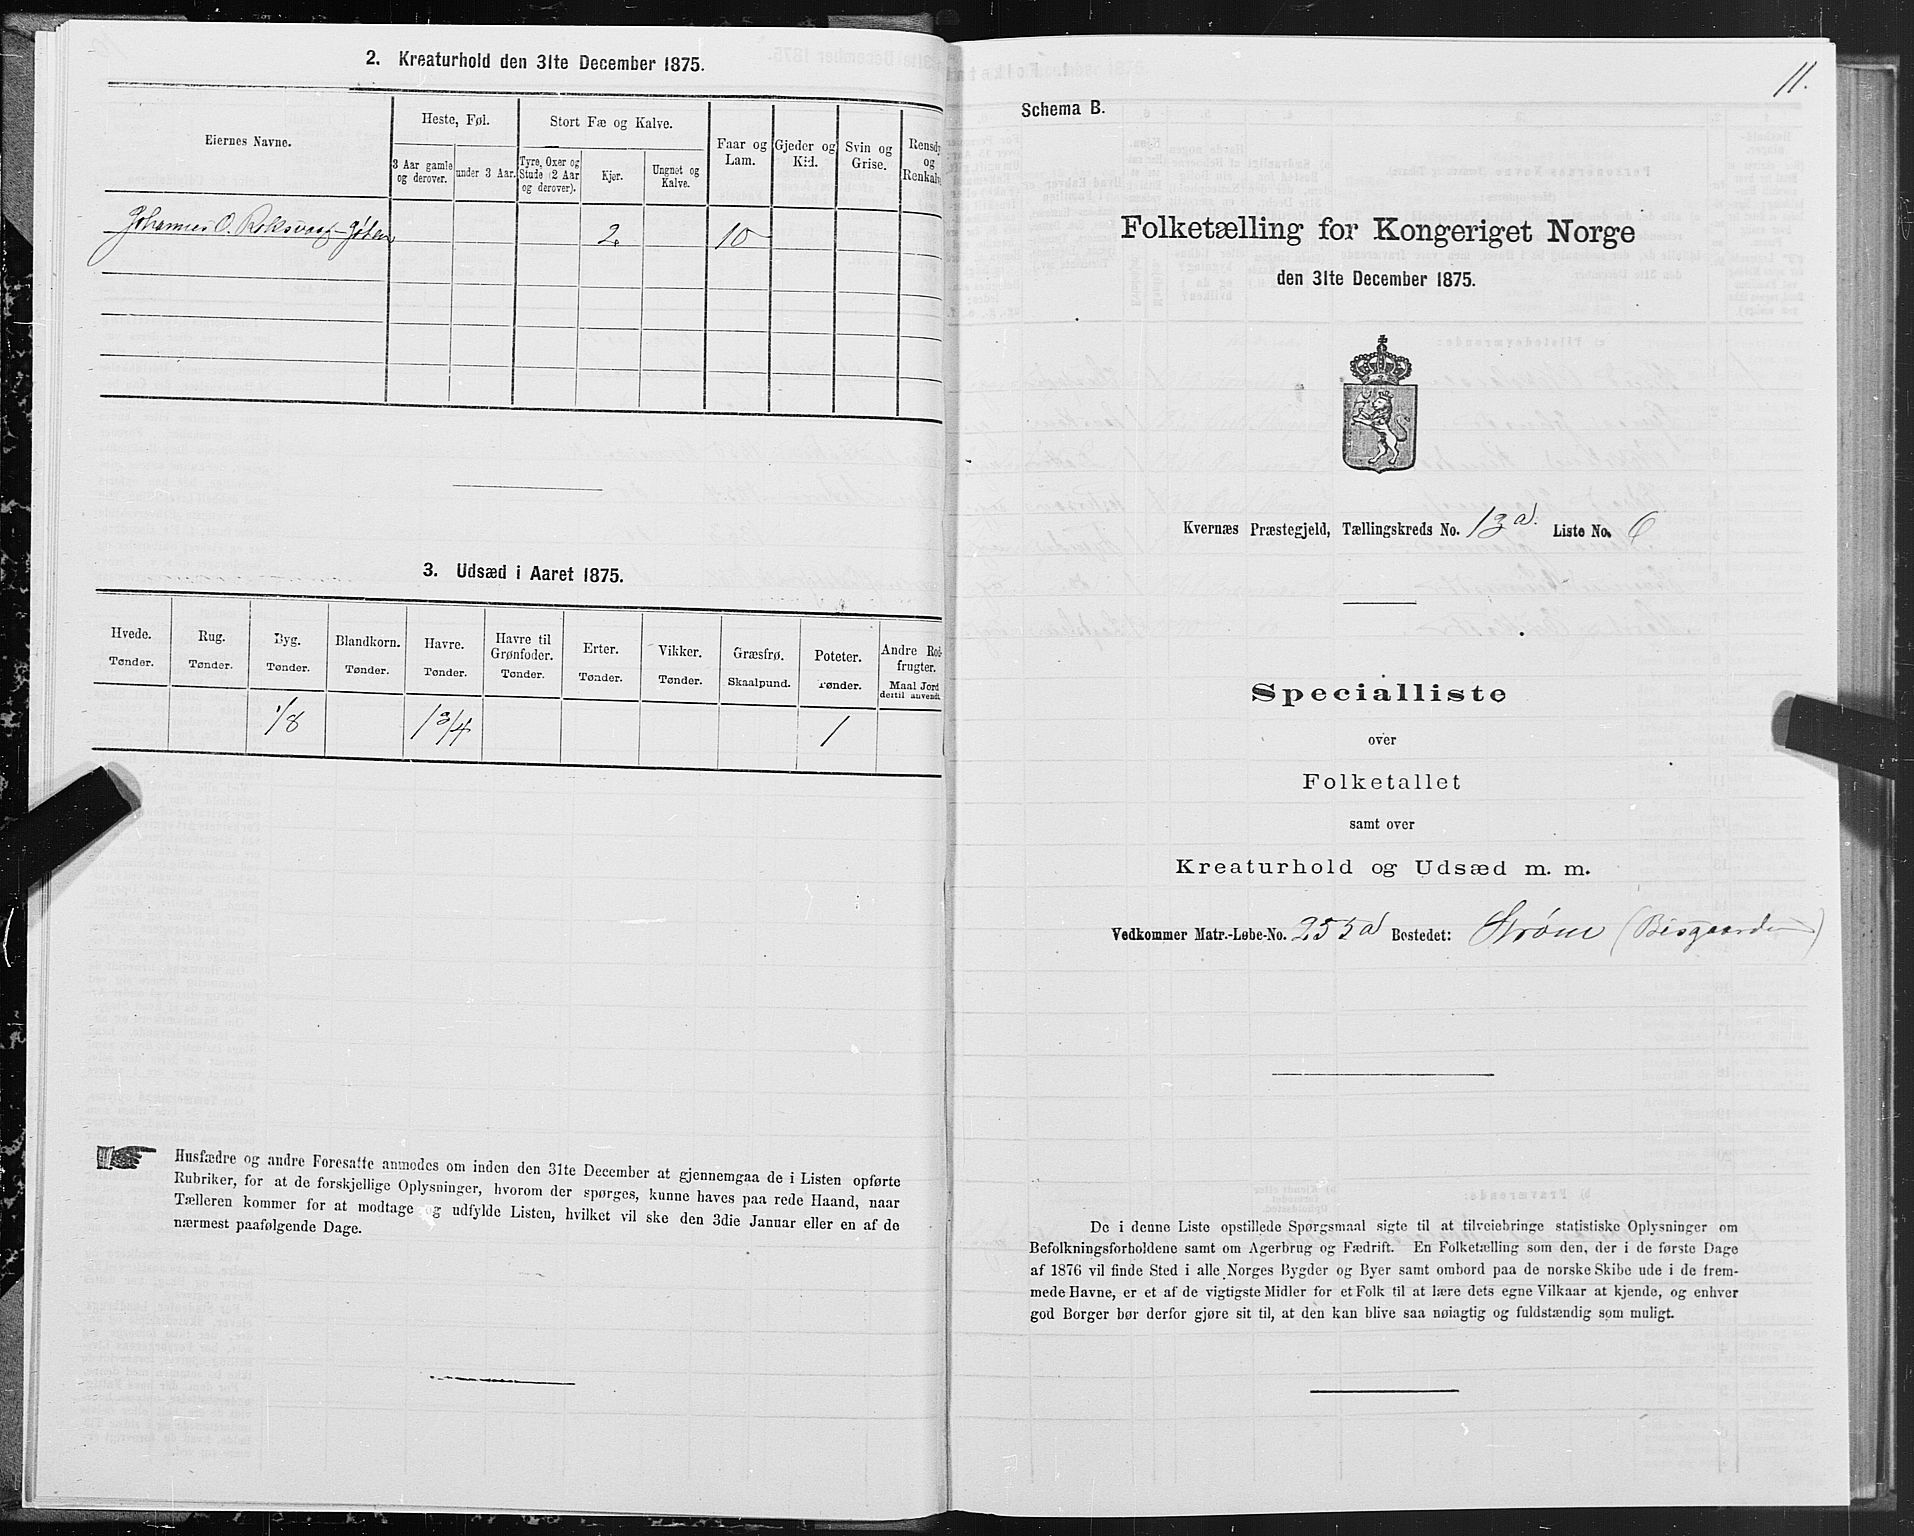 2. Kreaturhold den 31te December 1875.
Eiernes Navne.
Heste, Føl.
Stort Fæ og Kalve.
Faar og Lam.
Gjeder og Kid.
Svin og Grise.
Rensdy og Renkalve
3 Aar gamle og derover.
under 3 Aar.
Tyre, Oxer og Stude (2 Aar og derover).
Kjør.
Ungnet og Kalve.
Johannes O. 2 10
3. Udsæd i Aaret 1875.
Hvede. Rug. Byg. Blandkorn. Havre. Havre til Grønfoder. Erter. Vikker. Græsfrø. Poteter. Andre Rodfrugter.
Tønder. Tønder. Tønder. Tønder. Tønder. Tønder. Tønder. Tønder. Skaalpund. Tønder. Maal Jord dertil anvendt
1/8 1 3/4 1
Husfædre og andre Foresatte anmodes om inden den 31te December at gjennemgaa de i Listen opførte
Rubriker, for at de forskjellige Oplysninger, hvorom der spørges, kunne haves paa rede Haand, naar
Tælleren kommer for at modtage og udfylde Listen, hvilket vil ske den 3die Januar eller en af de
nærmest paafølgende Dage.
11.
Schema B.
Folketælling for Kongeriget Norge
den 31te December 1875.
Kvernæs Præstegjeld, Tællingskreds No. 13a. Liste No. 6
Specialliste
over
Folketallet
samt over
Kreaturhold og Udsæd m. m.
Vedkommer Matr.-Løbe-No. 255a Bostedet: Strøm (Bisgaarden)
De i denne Liste opstillede Spørgsmaal sigte til at tilveiebringe statistiske Oplysninger om
Befolkningsforholdene samt om Agerbrug og Fædrift. En Folketælling som den, der i de første Dage
af 1876 vil finde Sted i alle Norges Bygder og Byer samt ombord paa de norske Skibe ude i de frem-
mede Havne, er et af de vigtigste Midler for et Folk til at lære dets egne Vilkaar at kjende, og enhver
god Borger bør derfor gjøre sit til, at den kan blive saa nøiagtig og fuldstændig som muligt.